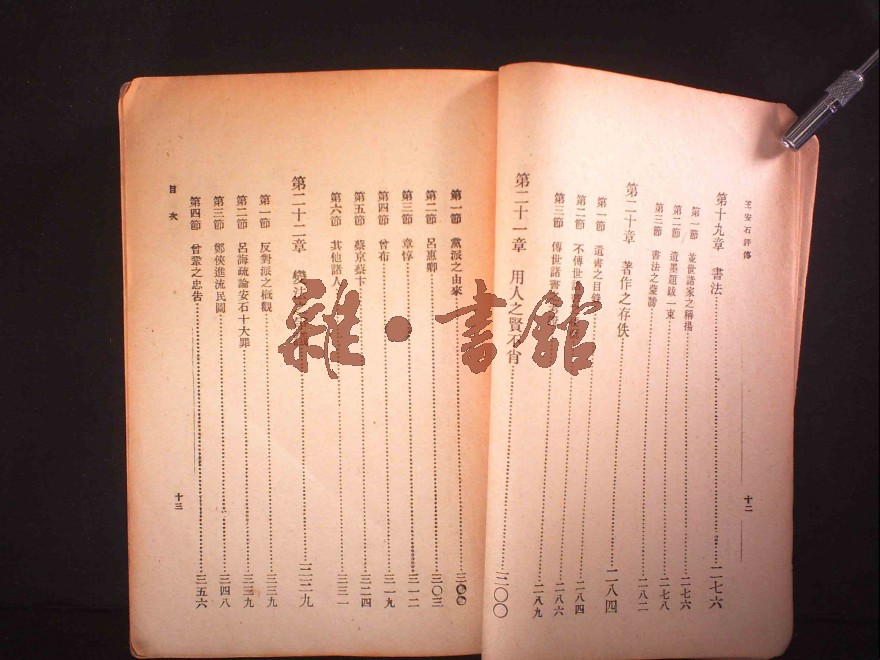 王安石評傳
第十九章 書法 二七六
第一節 並世諸家之稱揚 二七六
第二節 遺墨題跋一束 二七八
第三節 書法之 二八二
第二十章 著作之存佚 二八四
第一節 遺書之目錄 二八四
第二節 不傳世諸 二八六
第三節 傳世諸書 二八九
第二十一章 用人之賢不肖 三〇〇
十二
第一節 黨派之由來 三〇〇
第二節 呂惠卿 三〇三
第三節 章惇 三一二
第四節 曾布 三一九
第五節 蔡京蔡卞 三二四
第六節 其他諸人 三三一
第二十二章 變法 三三九
第一節 反對派之概觀 三三九
第二節 呂誨疏論安石十大罪 三三九
第三節 鄭俠進流民圖 三四八
第四節 曾鞏之忠告 三五六
目次
十三
雜·書館